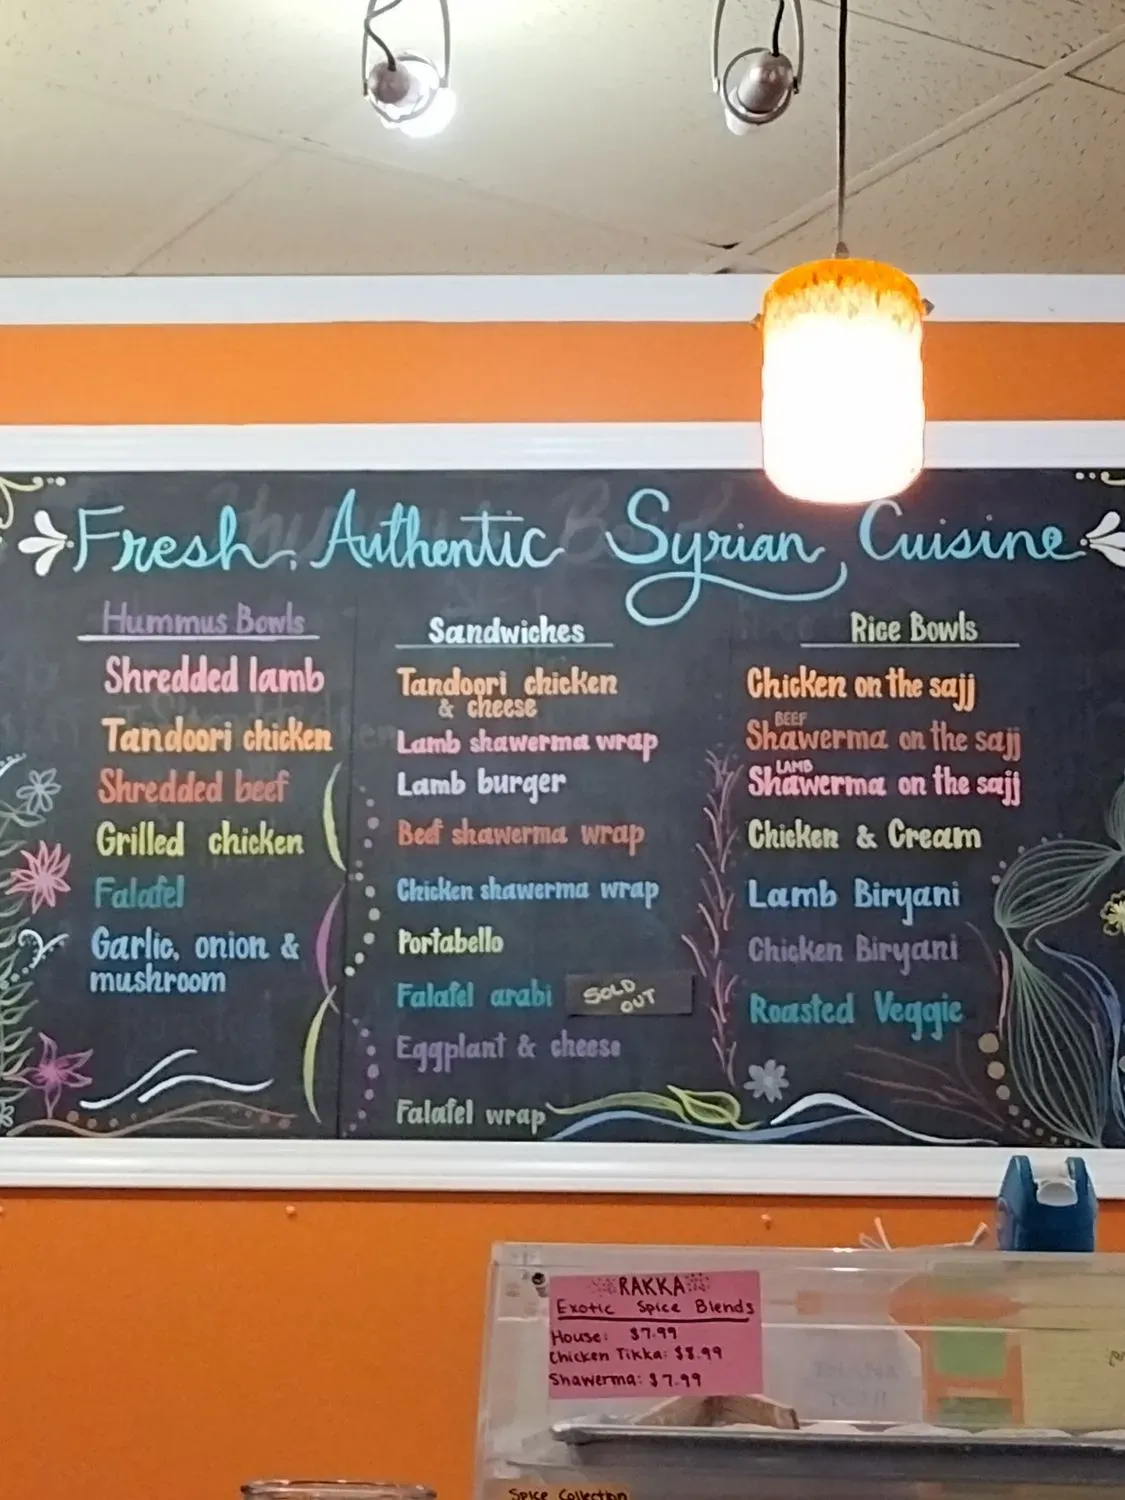 Fresh, Authentic Syrian Cuisine
Hummus Bowls
Shredded lamb
Tandoori chicken
Shredded beef
Grilled chicken
Falafel
Garlic, onion &
mushroom
Sandwiches
Tandoori chicken
& cheese
Lamb shawerma wrap
Lamb burger
Beef shawerma wrap
Chicken shawerma wrap
Portabello
Falafel arabi
SOLD
OUT
Eggplant & cheese
Falafel wrap
Rice Bowls
Chicken on the sajj
BEEF
Shawerma on the sajj
LAMB
Shawerma on the sajj
Chicken & Cream
Lamb Biryani
Chicken Biryani
Roasted Veggie
RAKKA
Exotic Spice Blends
House: $7.99
Chicken Tikka: $8.99
Shawerma: $7.99
Spice Collection